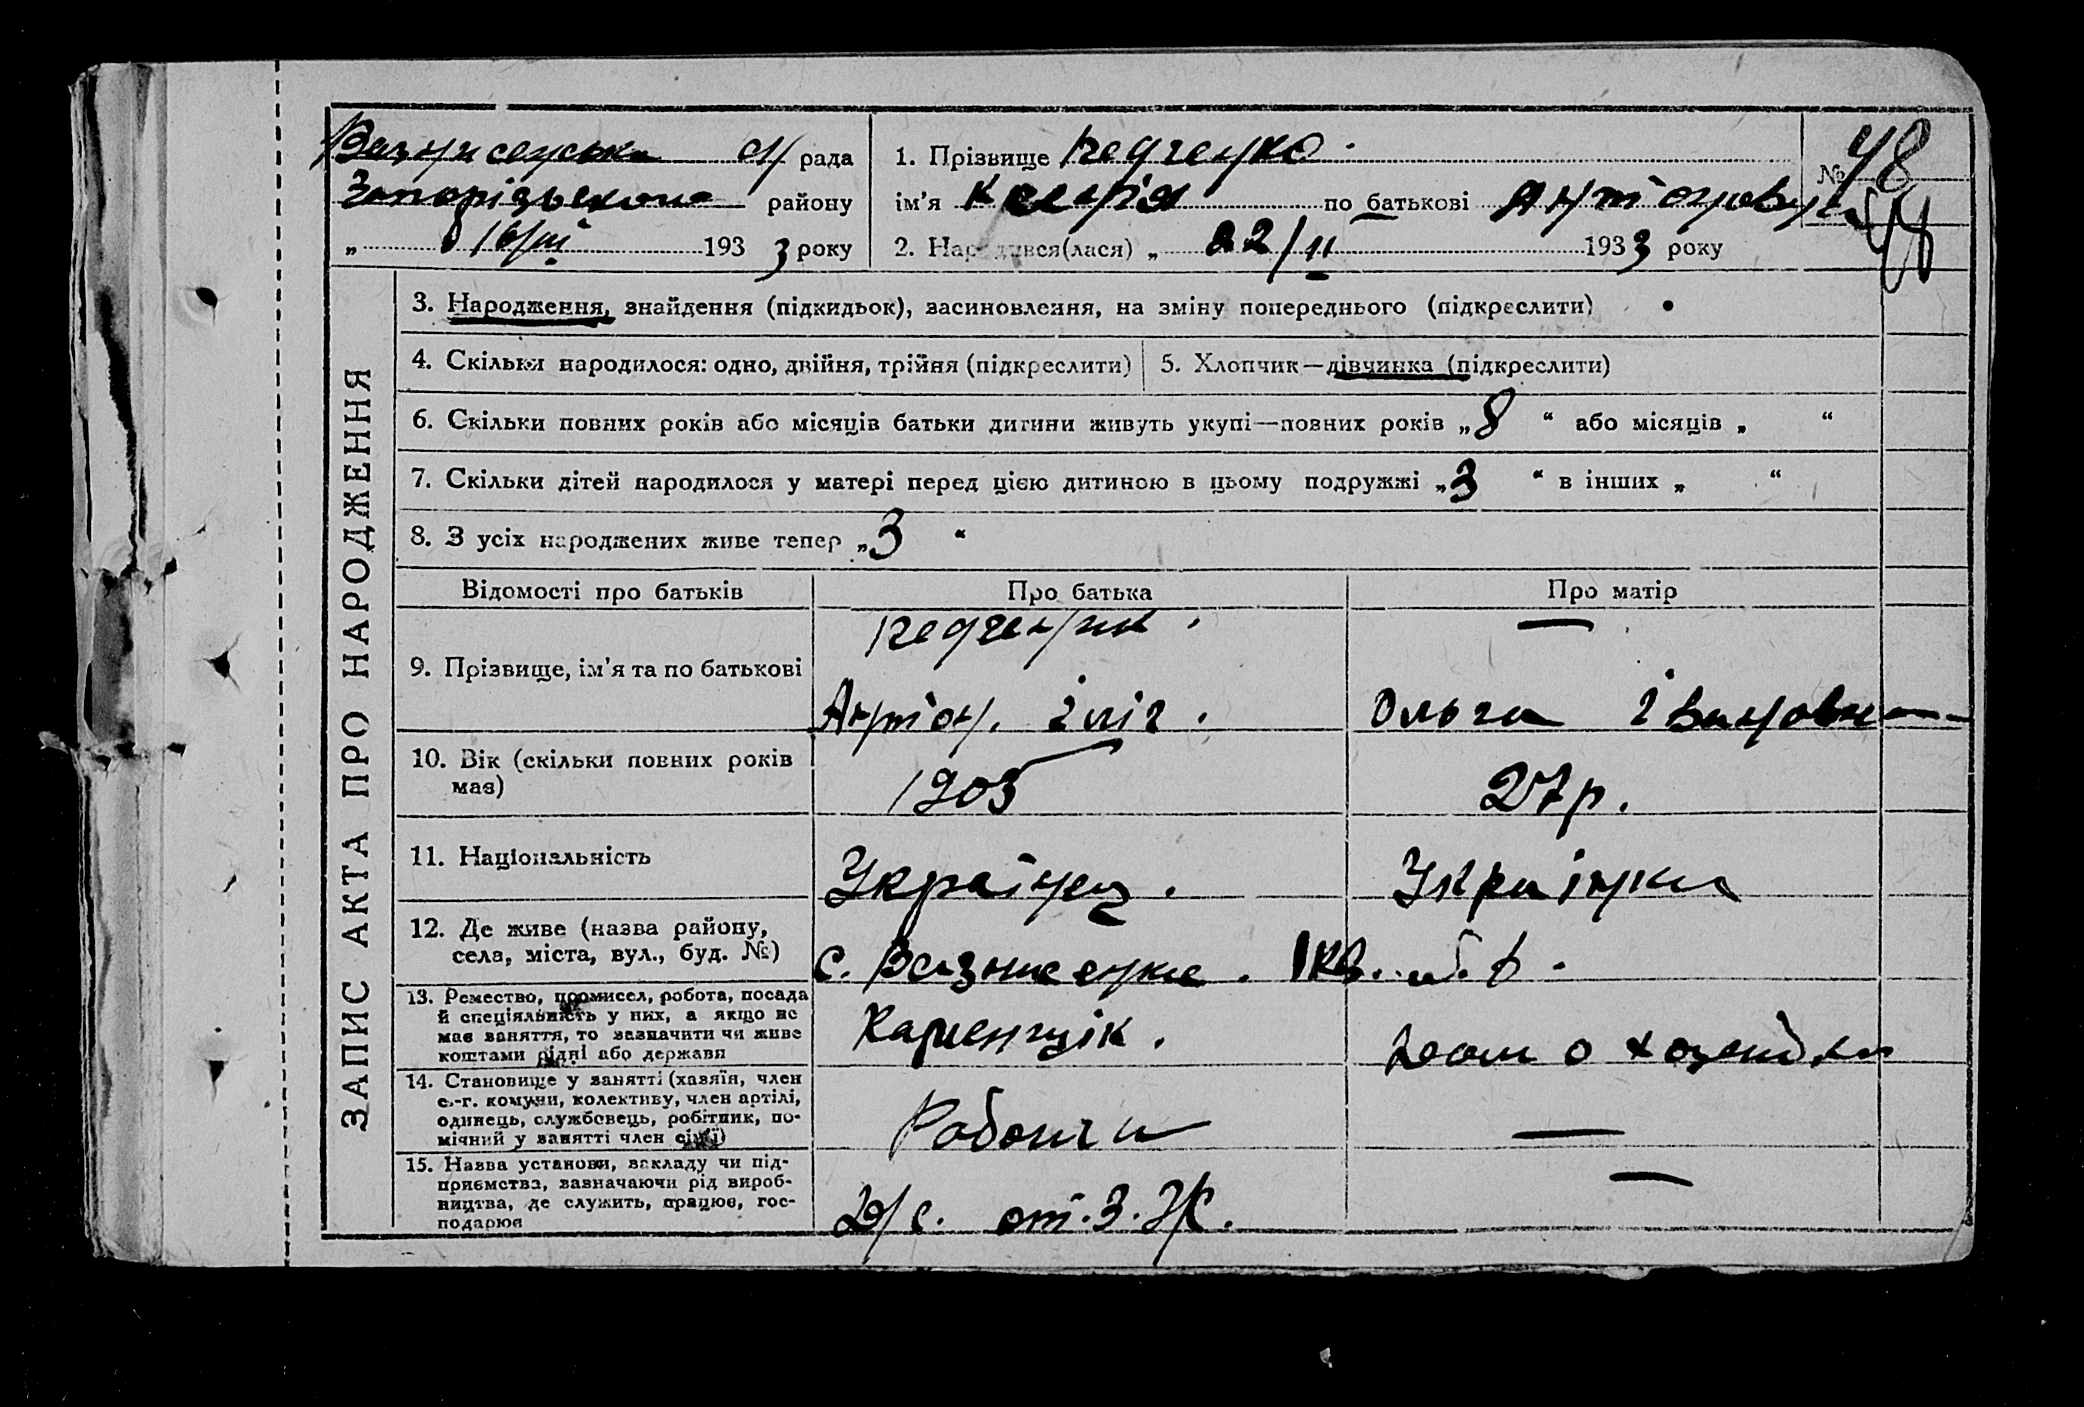 рада
Запорізького району
„ 16/III 1933 року
1. Прізвище Редченко.
ім'я по батькові Антоновна
2. Народився(лася) „ 22/II 1933 року
№ 48
48
ЗАПИС АКТА ПРО НАРОДЖЕННЯ
3. Народження, знайдення (підкидьок), засиновлення, на зміну попереднього (підкреслити)
4. Скільки народилося: одно, двійня, трійня (підкреслити)
5. Хлопчик—дівчинка (підкреслити)
6. Скільки повних років або місяців батьки дитини живуть укупі—повних років „8“ або місяців „ “
7. Скільки дітей народилося у матері перед цією дитиною в цьому подружжі „3“ в інших „ “
8. З усіх народжених живе тепер „3“
Відомості про батьків
Про батька
Про матір
9. Прізвище, ім'я та по батькові
Антон. Іліч.
—
Ольга Івановна
10. Вік (скільки повних років
має)
1905
27р.
11. Національність
Українец.
Українка
12. Де живе (назва району,
села, міста, вул., буд. №)
с. Вазнисенка. 1 кв.
13. Ремество, промисел, робота, посада
й спеціяльність у них, а якщо не
має заняття, то зазначити чи живе
коштами рідні або держави
Каменщік.
Домохозяйка
14. Становище у занятті (хазяїн, член
с.-г. комуни, колективу, член артілі,
одинець, службовець, робітник, по-
мічний у занятті член сім'ї)
Рабочи
—
15. Назва установи, закладу чи під-
приємства, зазначаючи рід вироб-
ництва, де служить, працює, гос-
подарює
—